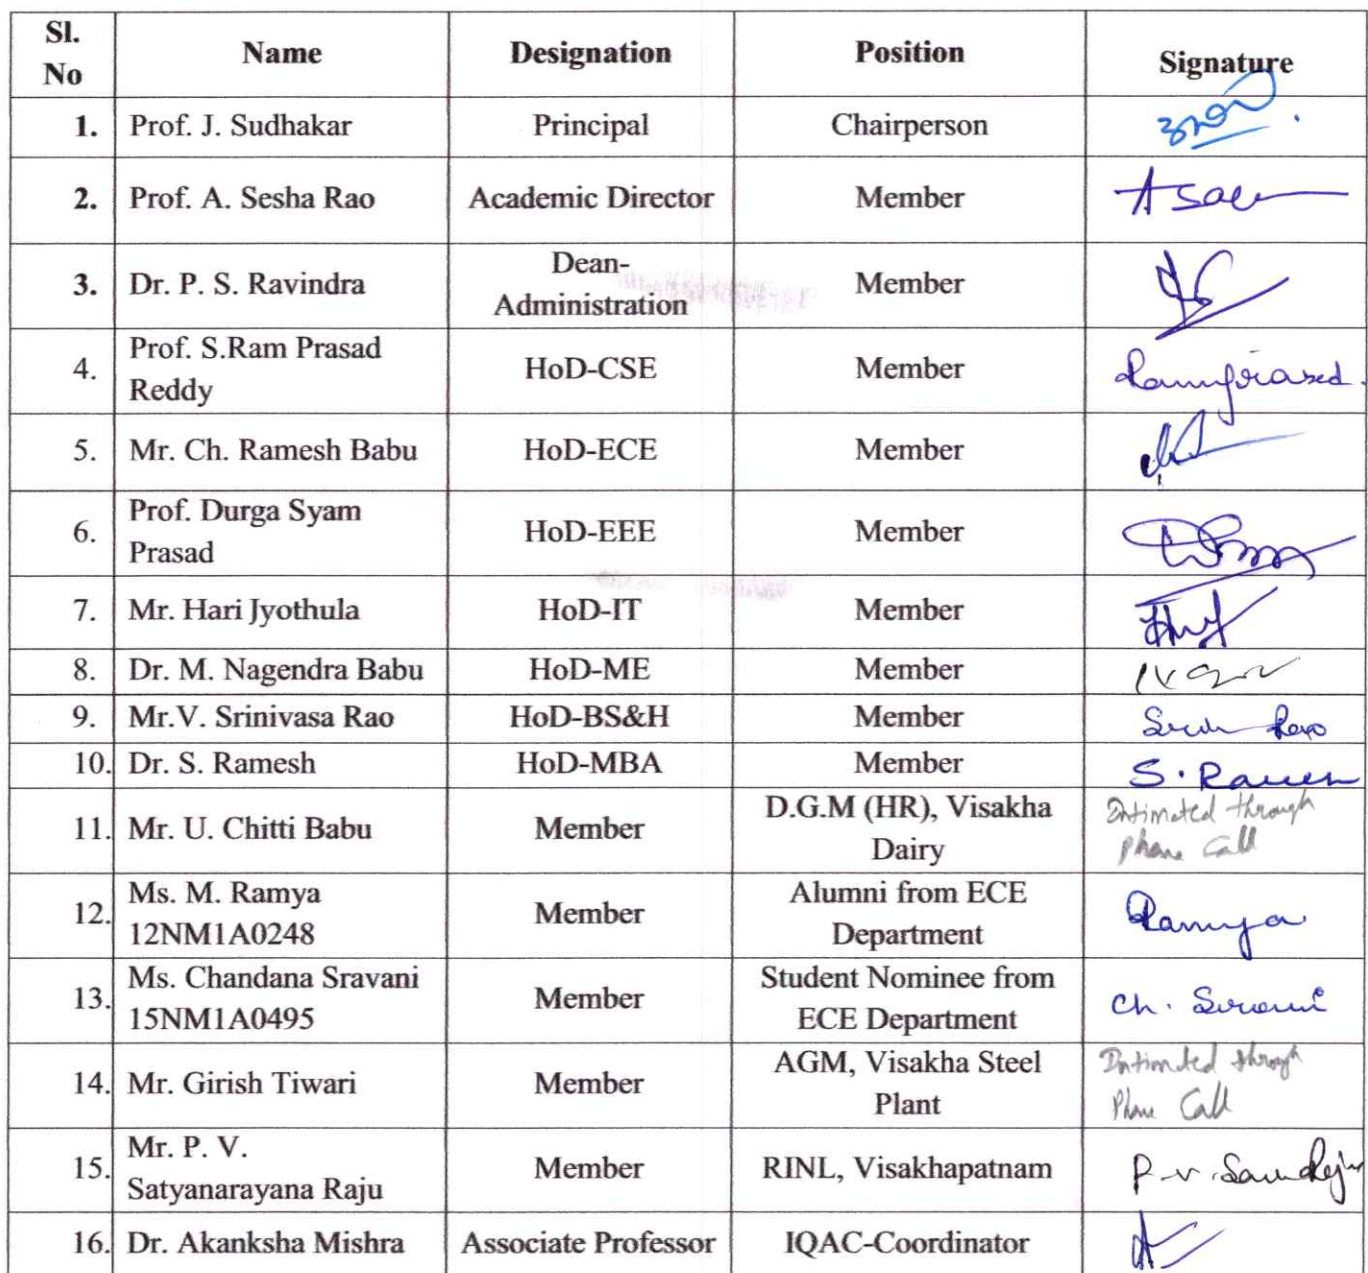 Sl. No Name Designation Position Signature
1. Prof. J. Sudhakar Principal Chairperson
2. Prof. A. Sesha Rao Academic Director Member
3. Dr. P. S. Ravindra Dean-
Administration Member
4. Prof. S.Ram Prasad
Reddy HoD-CSE Member Ramprasad.
5. Mr. Ch. Ramesh Babu HoD-ECE Member
6. Prof. Durga Syam
Prasad HoD-EEE Member
7. Mr. Hari Jyothula HoD-IT Member
8. Dr. M. Nagendra Babu HoD-ME Member
9. Mr.V. Srinivasa Rao HoD-BS&H Member
10. Dr. S. Ramesh HoD-MBA Member S. Ramesh
11. Mr. U. Chitti Babu Member D.G.M (HR), Visakha
Dairy Intimated through
Phone Call
12. Ms. M. Ramya
12NM1A0248 Member Alumni from ECE
Department Ramya
13. Ms. Chandana Sravani
15NM1A0495 Member Student Nominee from
ECE Department Ch. Sravani
14. Mr. Girish Tiwari Member AGM, Visakha Steel
Plant Intimated through
Phone Call
15. Mr. P. V.
Satyanarayana Raju Member RINL, Visakhapatnam
16. Dr. Akanksha Mishra Associate Professor IQAC-Coordinator